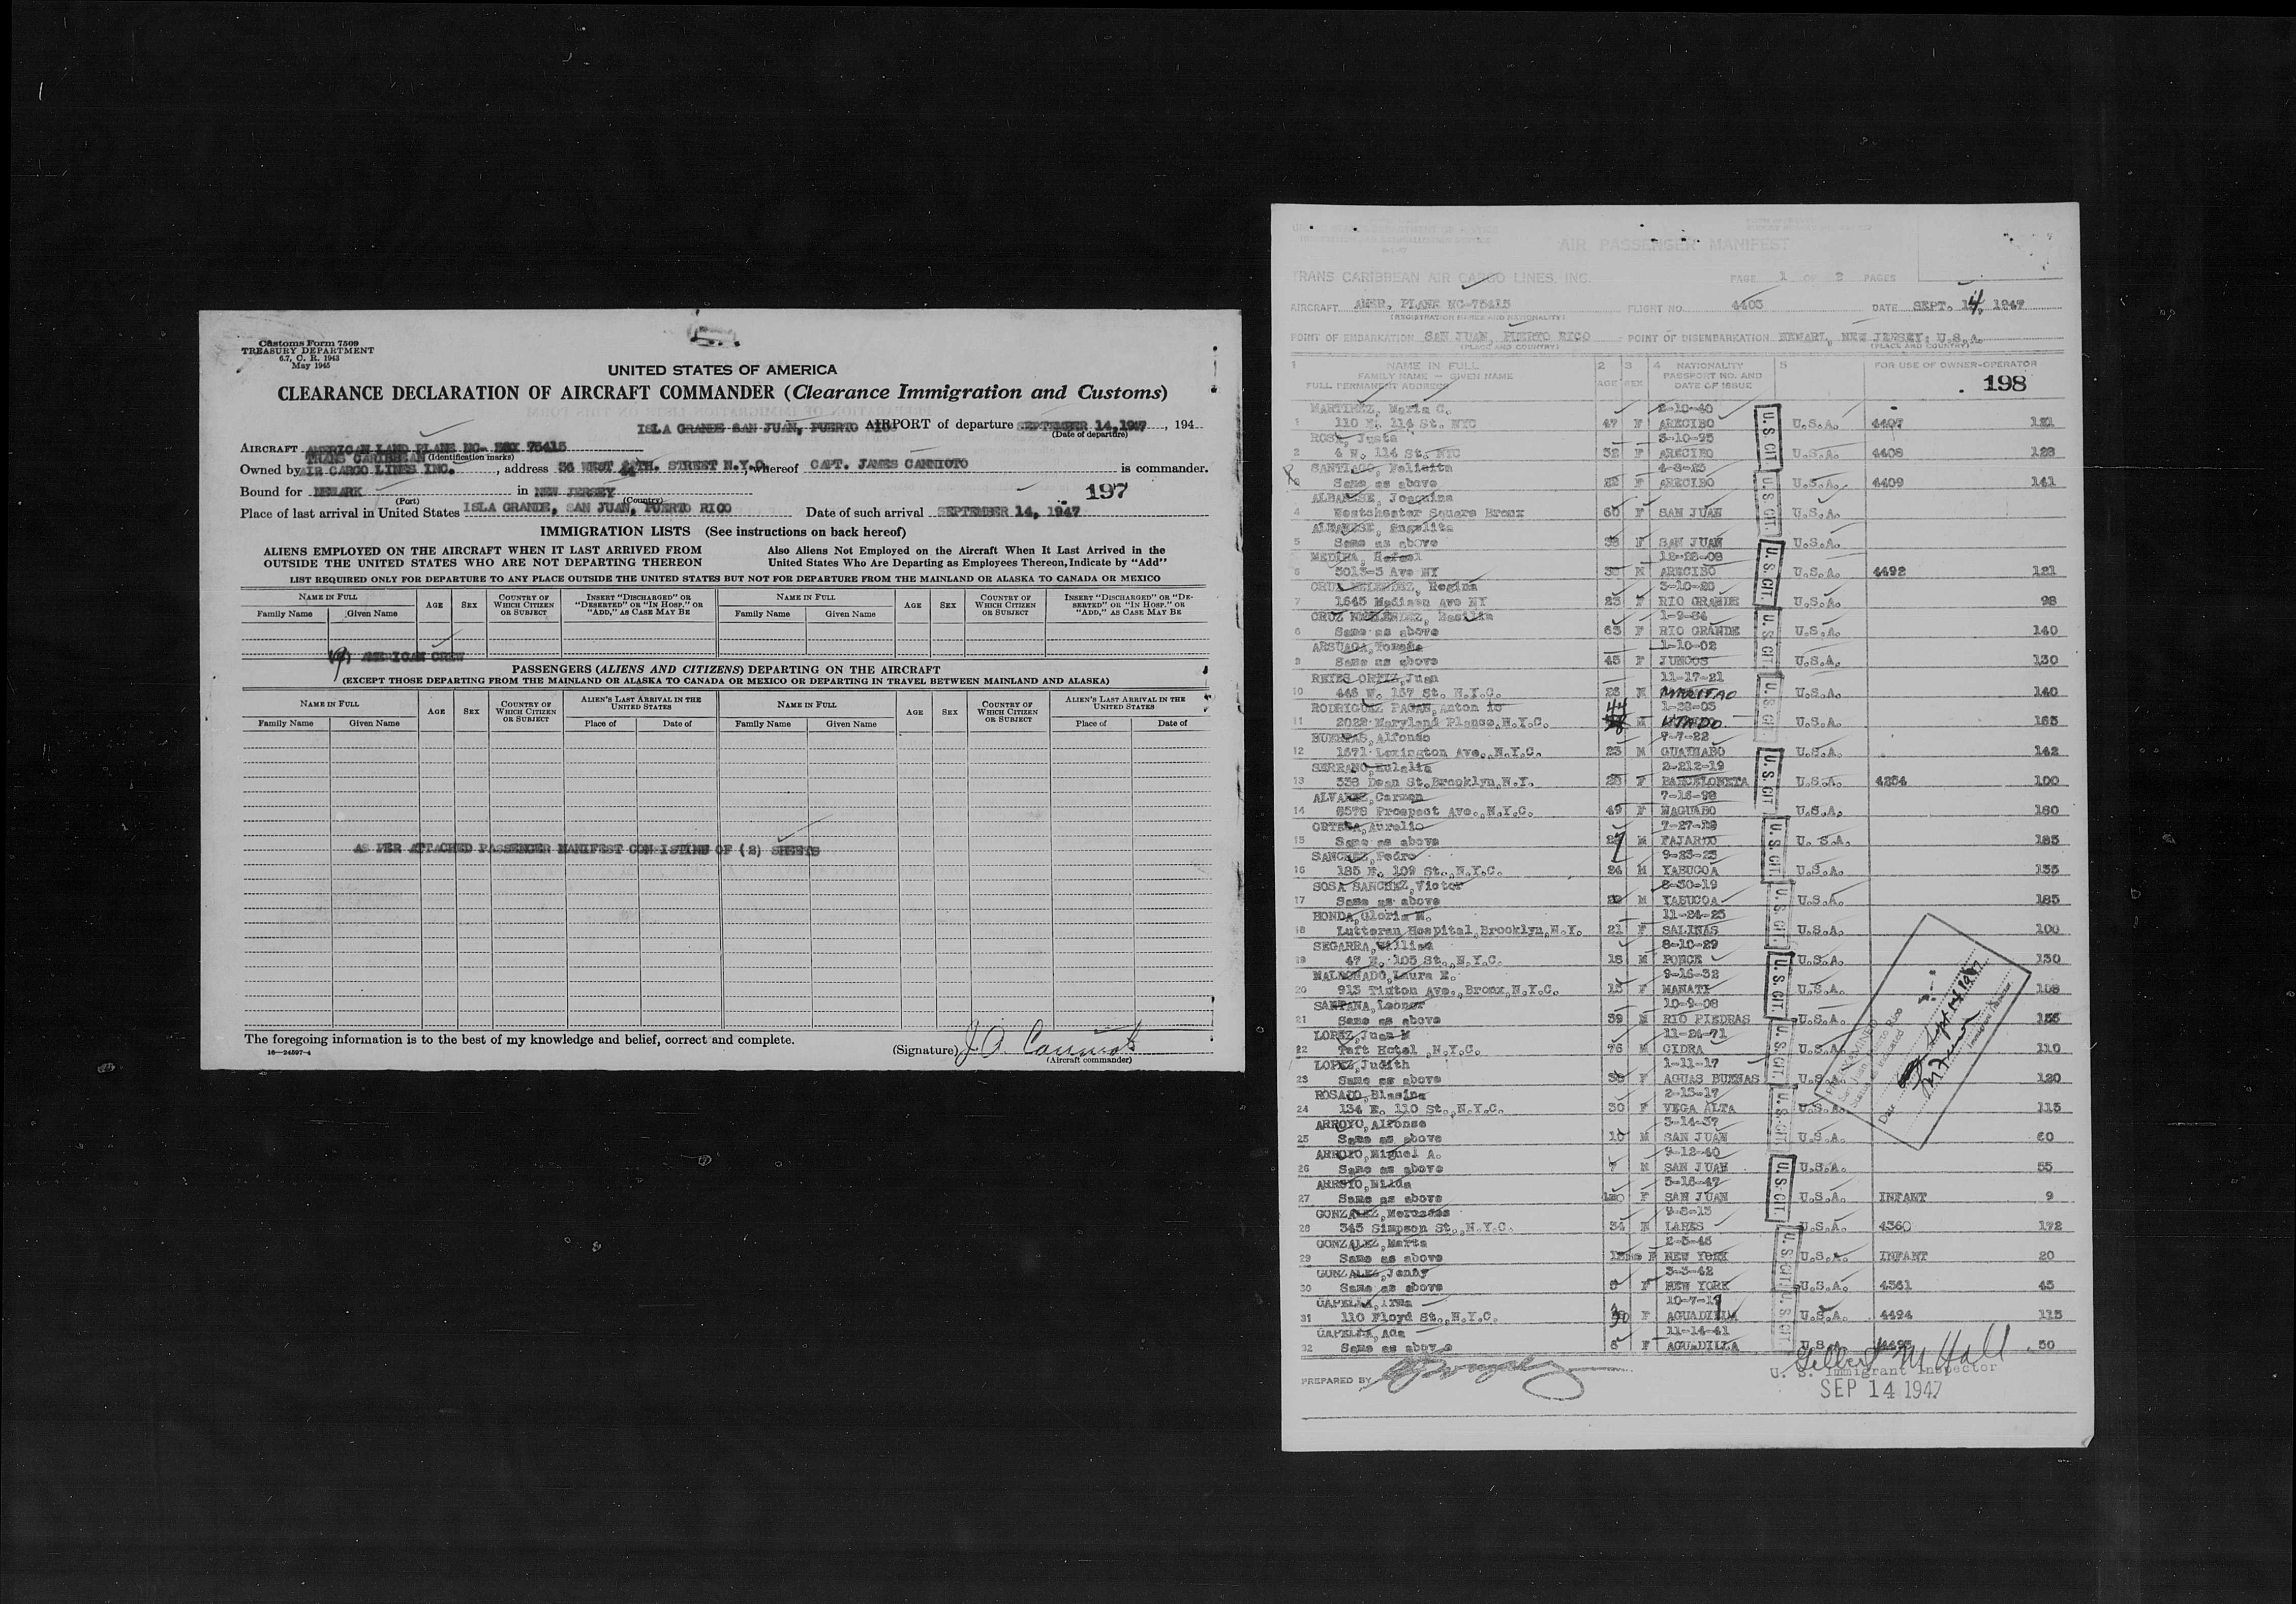 Customs Form 7509
TREASURY DEPARTMENT
6.7, C. R. 1943
May 1945
UNITED STATES OF AMERICA
CLEARANCE DECLARATION OF AIRCRAFT COMMANDER (Clearance Immigration and Customs)
ISLA GRANDE SAN JUAN, PUERTO RICO AIRPORT of departure SEPTEMBER 14,1947, 194
(Date of departure)
Aircraft AMERICAN LAND PLANE NC- 75415
(Identification marks)
Owned by TRANS CARIBBEAN AIR CARGO LINES INC., address 36 WEST 44TH. STREET N.Y.C. whereof CAPT. JAMES CANNIOTO is commander.
Bound for NEWARK in NEW JERSEY 197
(Port) (Country)
Place of last arrival in United States ISLA GRANDE, SAN JUAN, PUERTO RICO Date of such arrival SEPTEMBER 14, 1947
IMMIGRATION LISTS (See instructions on back hereof)
ALIENS EMPLOYED ON THE AIRCRAFT WHEN IT LAST ARRIVED FROM OUTSIDE THE UNITED STATES WHO ARE NOT DEPARTING THEREON
Also Aliens Not Employed on the Aircraft When It Last Arrived in the United States Who Are Departing as Employees Thereon, Indicate by "Add"
LIST REQUIRED ONLY FOR DEPARTURE TO ANY PLACE OUTSIDE THE UNITED STATES BUT NOT FOR DEPARTURE FROM THE MAINLAND OR ALASKA TO CANADA OR MEXICO
NAME IN FULL AGE SEX COUNTRY OF WHICH CITIZEN OR SUBJECT INSERT "DISCHARGED" OR "DESERTED" OR "IN HOSP." OR "ADD," AS CASE MAY BE NAME IN FULL AGE SEX COUNTRY OF WHICH CITIZEN OR SUBJECT INSERT "DISCHARGED" OR "DESERTED" OR "IN HOSP." OR "ADD," AS CASE MAY BE
Family Name Given Name Family Name Given Name
(9) AMERICAN CREW
PASSENGERS (ALIENS AND CITIZENS) DEPARTING ON THE AIRCRAFT
(EXCEPT THOSE DEPARTING FROM THE MAINLAND OR ALASKA TO CANADA OR MEXICO OR DEPARTING IN TRAVEL BETWEEN MAINLAND AND ALASKA)
NAME IN FULL AGE SEX COUNTRY OF WHICH CITIZEN OR SUBJECT ALIEN'S LAST ARRIVAL IN THE UNITED STATES NAME IN FULL AGE SEX COUNTRY OF WHICH CITIZEN OR SUBJECT ALIEN'S LAST ARRIVAL IN THE UNITED STATES
Family Name Given Name Place of Date of Family Name Given Name Place of Date of
AS PER ATTACHED PASSENGER MANIFEST CONSISTING OF (2) SHEETS
The foregoing information is to the best of my knowledge and belief, correct and complete.
16—24597-4
(Signature) J. A. Cannioto
(Aircraft commander)
AIR PASSENGER MANIFEST
TRANS CARIBBEAN AIR CARGO LINES, INC. PAGE 1 OF 2 PAGES
AIRCRAFT AMER. PLANE NC-75415 FLIGHT NO. 4403 DATE SEPT. 14, 1947
(REGISTRATION MARKS AND NATIONALITY)
POINT OF EMBARKATION SAN JUAN, PUERTO RICO POINT OF DISEMBARKATION NEWARK, NEW JERSEY, U.S.A.
(PLACE AND COUNTRY) (PLACE AND COUNTRY)
1 NAME IN FULL 2 3 4 NATIONALITY 5 FOR USE OF OWNER-OPERATOR
FAMILY NAME — GIVEN NAME AGE SEX PASSPORT NO. AND
FULL PERMANENT ADDRESS DATE OF ISSUE 198
MARTINEZ, Maria C. 2-10-40
1 110 E. 114 St. NYC 47 F ARECIBO U.S.A. 4407 121
ROSA, Justa 3-10-95
2 4 W. 114 St. NYC 52 F ARECIBO U.S.A. 4408 128
SANTIAGO, Felicita 4-8-25
3 Same as above 22 F ARECIBO U.S.A. 4409 141
ALBANESE, Joaquina
4 Westchester Square Bronx 60 F SAN JUAN U.S.A.
ALBANESE, Angelita
5 Same as above 38 F SAN JUAN U.S.A.
MEDINA, Rafael 12-28-08
6 5013-3 Ave NY 38 M ARECIBO U.S.A. 4492 121
CRUZ MELENDEZ, Regina 3-10-20
7 1645 Madison Ave NY 23 F RIO GRANDE U.S.A. 98
CRUZ MELENDEZ, Basilia 1-9-84
8 Same as above 63 F RIO GRANDE U.S.A. 140
ARSUAGA, Tomasa 1-10-02
9 Same as above 45 F JUNCOS U.S.A. 130
REYES ORTIZ, Juan 11-17-21
10 446 W. 157 St. N.Y.C. 25 M U.S.A. 140
RODRIGUEZ PAGAN, Antonio 1-28-03
11 2022 Maryland Place, N.Y.C. 44 M UTADO U.S.A. 165
BUERRAS, Alfonso 7-7-22
12 1671 Lexington Ave., N.Y.C. 25 M GUAYNABO U.S.A. 142
SERRANO, Eulalia 2-212-19
13 338 Dean St., Brooklyn, N.Y. 28 F BARCELONETA U.S.A. 4254 100
ALVAREZ, Carmen 7-16-98
14 Prospect Ave., N.Y.C. 49 F NAGUABO U.S.A. 180
ORTEGA, Aurelio 7-27-19
15 Same as above 27 M FAJARDO U. S.A. 185
SANCHEZ, Pedro 9-23-23
16 185 E. 109 St., N.Y.C. 24 M YABUCOA U.S.A. 135
SOSA SANCHEZ, Victor 8-30-19
17 Same as above M YABUCOA U.S.A. 185
HONDA, Gloria M. 11-24-25
18 Lutteran Hospital, Brooklyn, N.Y. 21 F SALINAS U.S.A. 100
SEGARRA, William 8-10-29
19 47 E. 105 St., N.Y.C. 18 M PONCE U.S.A. 130
MALDONADO, Laura E. 9-16-32
20 913 Tinton Ave., Bronx, N.Y.C. 15 F MANATI U.S.A. 108
SANTANA, Leonor 10-9-08
21 Same as above 39 M RIO PIEDRAS U.S.A. 156
LOPEZ, Juan M 11-24-71
22 Taft Hotel, N.Y.C. 76 M CIDRA U.S.A. 110
LOPEZ, Judith 1-11-17
23 Same as above 30 F AGUAS BUENAS U.S.A. 120
ROSADO, Blasina 2-15-17
24 134 E. 110 St., N.Y.C. 30 F VEGA ALTA U.S.A. 115
ARROYO, Alfonso 3-14-37
25 Same as above 10 M SAN JUAN U.S.A. 60
ARROYO, Miguel A. 9-12-40
26 Same as above 7 M SAN JUAN U.S.A. 55
ARROYO, Nilda 5-16-47
27 Same as above F SAN JUAN U.S.A. INFANT 9
GONZALEZ, Mercedes 9-8-13
28 345 Simpson St., N.Y.C. 34 LARES U.S.A. 4360 172
GONZALEZ, Marta 2-5-46
29 Same as above F NEW YORK U.S.A. INFANT 20
GONZALEZ, Jenny 3-3-42
30 Same as above 5 F NEW YORK U.S.A. 4361 45
CAPELLA, Irma 10-7-17
31 110 Floyd St., N.Y.C. 30 F AGUADILLA U.S.A. 4494 115
CAPELLA, Ada 11-14-41
32 Same as above 6 F AGUADILLA U.S.A. 4495 50
U.S. CIT.
PREPARED BY
Gilbert M Hall
U. S. Immigrant Inspector
SEP 14 1947